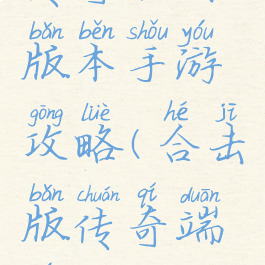 bǎn běn shǒu yóu
版本手游
gōng lüè hé jī
攻略(合击
bǎn chuán qí duān
版传奇端